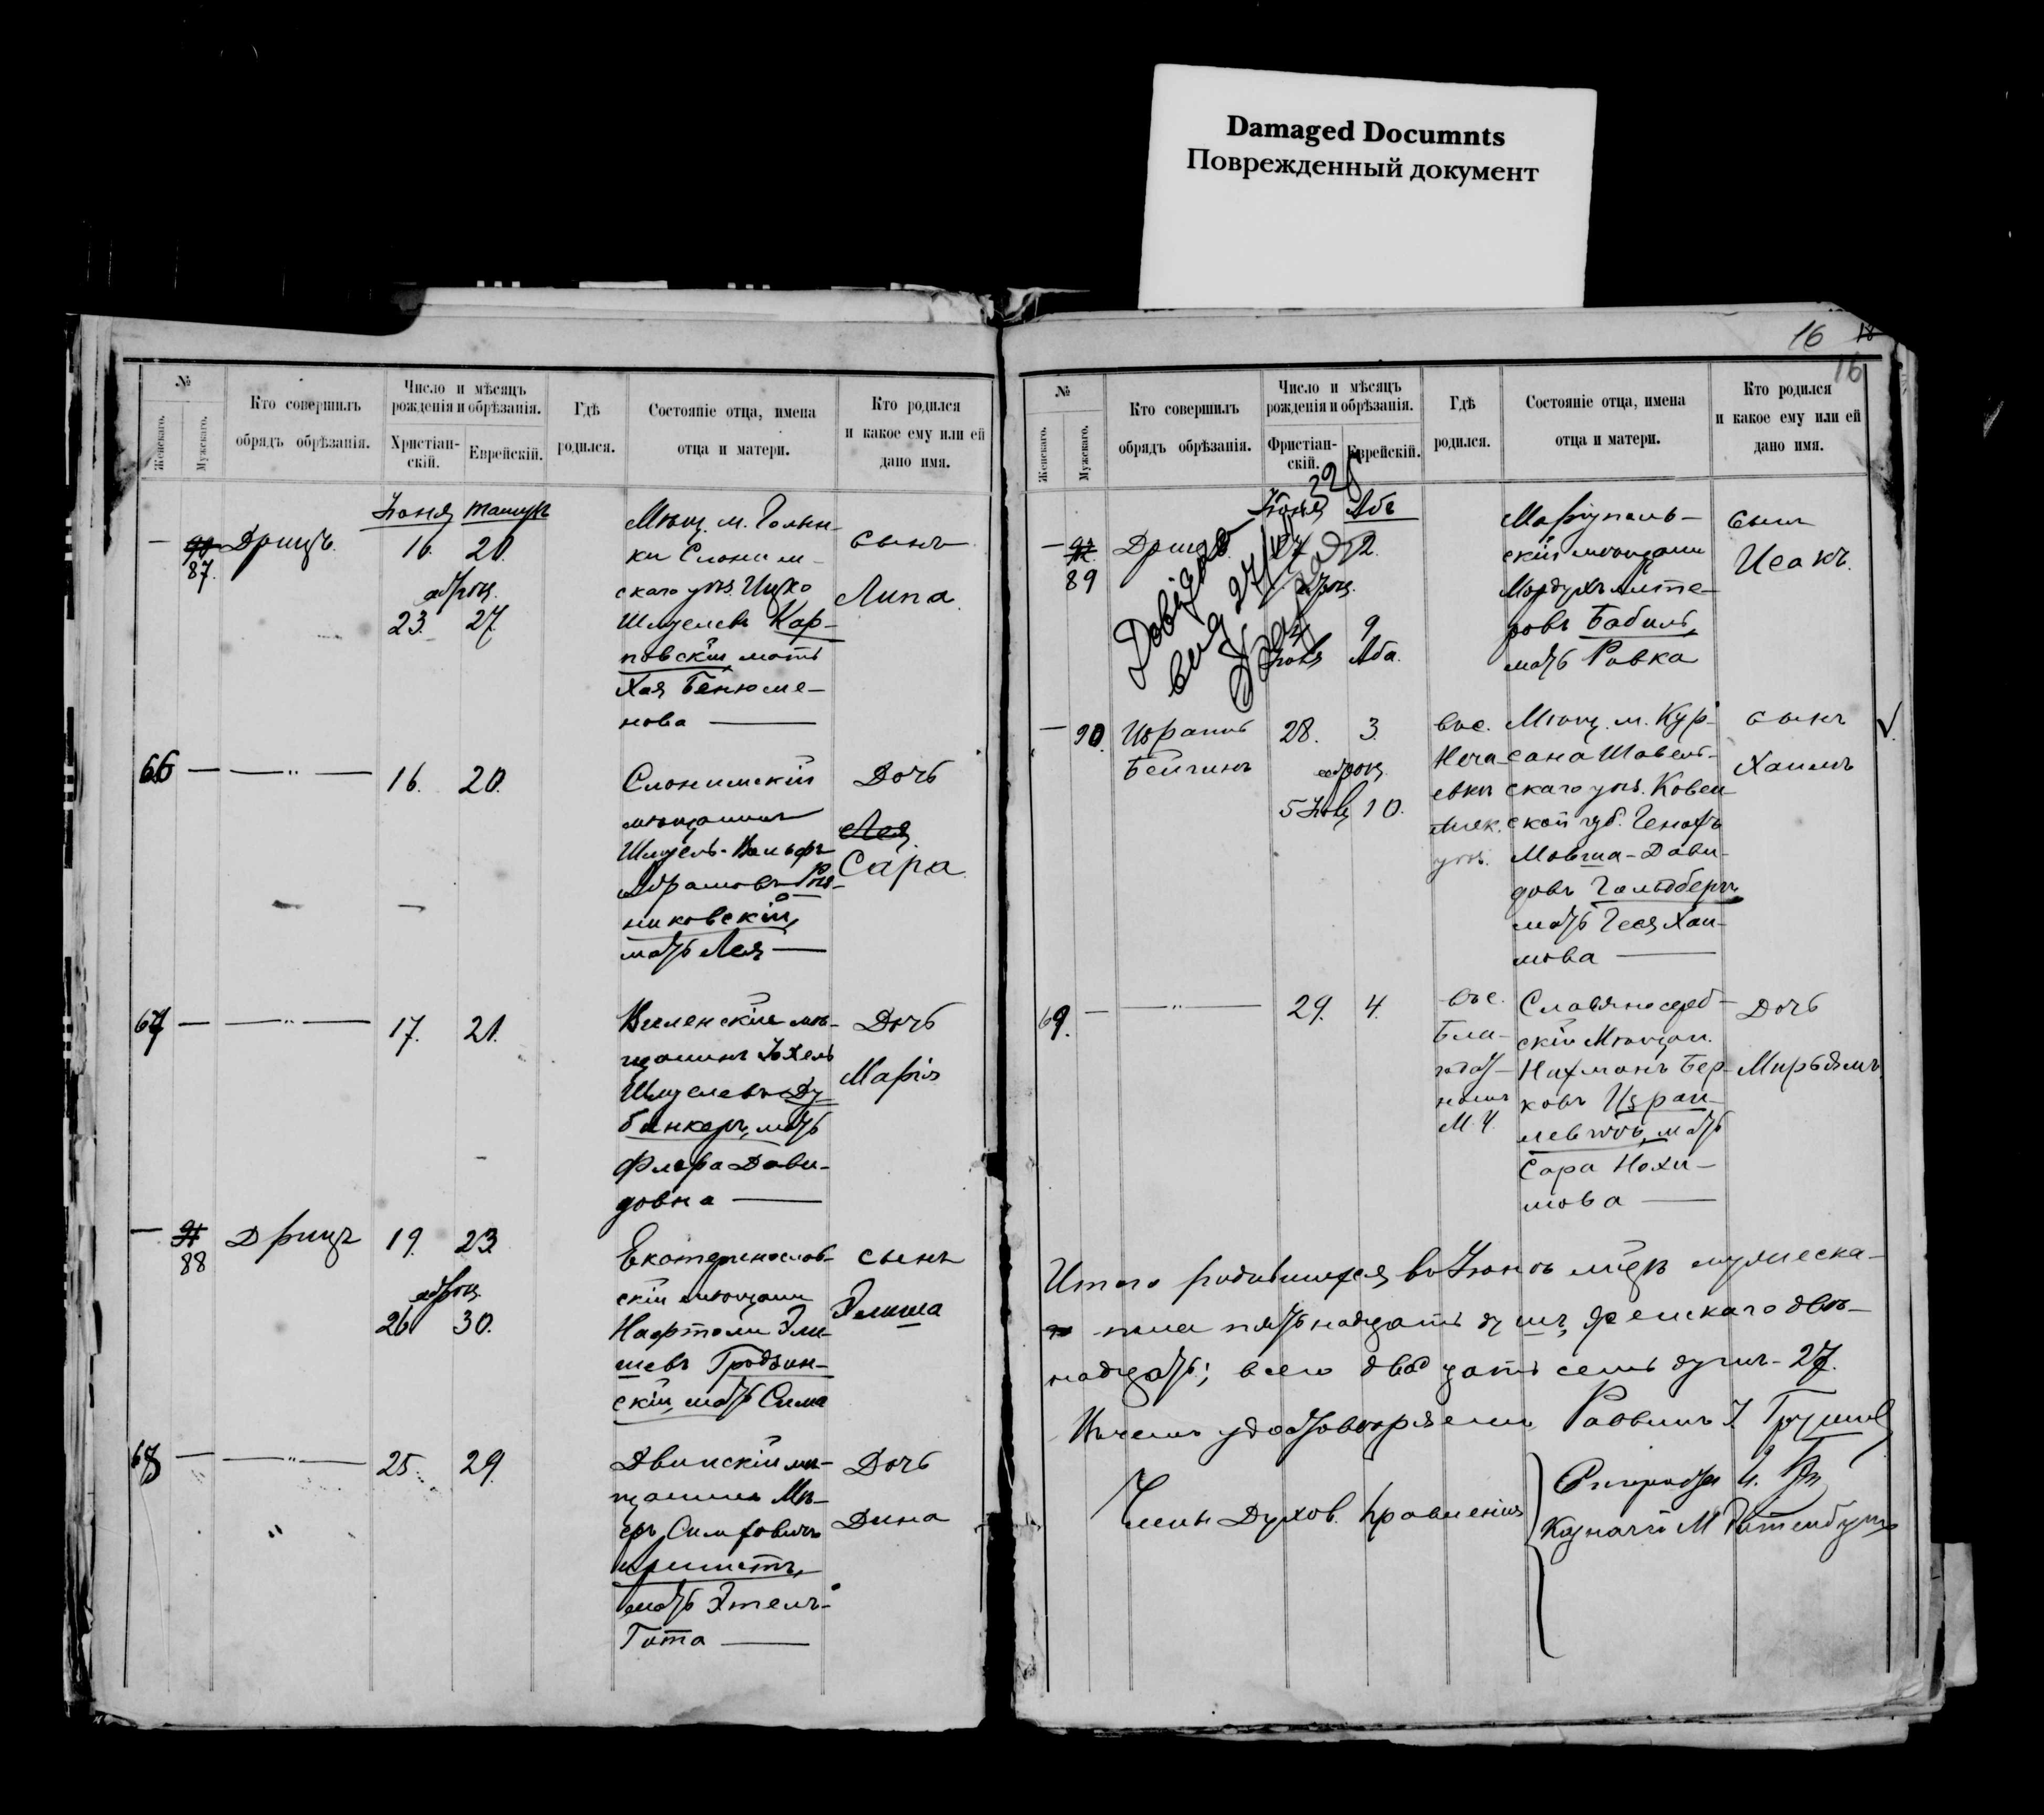 Damaged Documnts
Поврежденный документ
№
Женскаго.
Мужскаго.
Кто совершилъ
обрядъ обрѣзанія.
Число и мѣсяцъ
рожденія и обрѣзанія.
Христіан-
скій.
Еврейскій.
Гдѣ
родился.
Состояніе отца, имена
отца и матери.
Кто родился
и какое ему или ей
дано имя.
Іюня
87.
Дрицъ
16. 20
23. 27
Мѣщ. м.
ки Слоним-
скаго уѣз. Ицко
Шмуелевъ Кар-
повскій, мать
Хая Бенюми-
нова
сынъ
Липа
66
16. 20.
Слонимскій
мѣщанинъ
Шмуель-Вольфъ
Абрамовъ
никовскій,
мать Лея
Дочь
Лея
Сара
67
17. 21.
Виленскій мѣ-
щанинъ Іохель
Шмуелевъ Ду-
бинкеръ, мать
Флора Дави-
довна
Дочь
Марія
88
Дрицъ
19. 23
26 30.
Екатеринослав-
скій мѣщани
Нафтоли Эли-
шевъ Гродзин-
скій, мать Сима
сынъ
Элиша
68
25. 29.
Двинскій мѣ-
щанинъ Мѣ-
еръ
мать Этель-
Гита
Дочь
Дина
16
16
№
Женскаго.
Мужскаго.
Кто совершилъ
обрядъ обрѣзанія.
Число и мѣсяцъ
рожденія и обрѣзанія.
Фристіан-
скій.
Еврейскій.
Гдѣ
родился.
Состояніе отца, имена
отца и матери.
Кто родился
и какое ему или ей
дано имя.
Іюня Абъ
89
2.
9
Аба.
Маріуполь-
скій мѣщани
Мордухъ Алте-
ровъ Бабиль,
мать Ривка
сынъ
Исакъ.
90
Израиль
Бейлинъ
28. 3.
5 10.
Мѣщ. м. Кур-
сана Шавель-
скаго уѣз. Ковен
ской губ.
Мовша-Дави-
довъ Гольдбергъ
мать Геся Хаи-
мова
сынъ
Хаимъ
69.
29. 4.
Славяносерб-
скій Мѣщан.
Нахманъ Бер-
ковъ Израи-
левичъ, мать
Сара Нохи-
мова
Дочь
Мирьямъ
Итого родившихся въ Іюнѣ м-цѣ мужеска-
го пола пятьнадцать душъ, женскаго двѣ-
надцать; всего двадцать семь душъ - 27.
Въ чемъ удостовѣряемъ Раввинъ
Члены Духов. Правленія
Казначей М